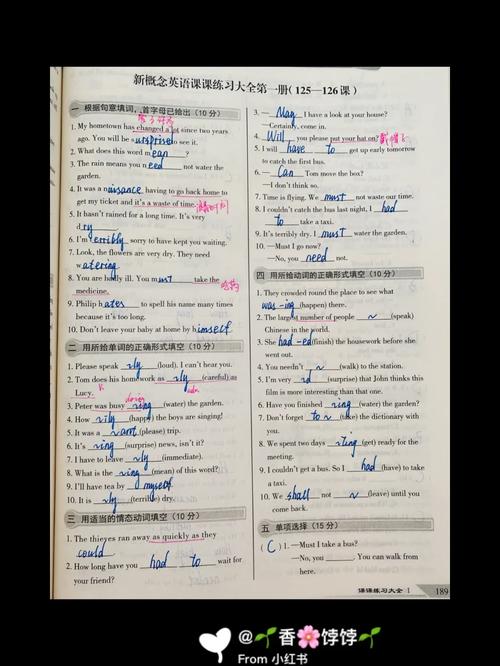 新概念英语课课练习大全第一册(125—126课)
一 根据句意填词,首字母已给出(10分)
1. My hometown has changed a lot since two years
ago. You will be surprised to see it.
2. What does this word mean?
3. The rain means you need not water the
garden.
4. It was a nuisance having to go back home to
get my ticket and it's a waste of time.
5. It hasn't rained for a long time. It's very
dry
6. I'm terribly sorry to have kept you waiting.
7. Look, the flowers are very dry. They need
watering
8. You are badly ill. You must take the
medicine.
吃药
9. Philip hates to spell his name many times
because it's too long.
10. Don't leave your baby at home by himself
二 用所给单词的正确形式填空(10分)
1. Please speak ~ly (loud). I can't hear you.
2. Tom does his homework as ~ly (careful) as
Lucy. v. adv.
doing
3. Peter was busy ~ing (water) the garden.
4. How ~ily (happy) the boys are singing!
5. It was a ~ant (please) trip.
6. It's ~ing (surprise) news, isn't it?
7. I have to leave ~ly (immediate).
8. What is the ~ing (mean) of this word?
9. I'll have tea by myself
10. It is ~ly (terrible) dry.
三 用适当的情态动词填空(10分)
1. The thieves ran away as quickly as they
could
2. How long have you had to wait for
your friend?
3. — May I have a look at your house?
—Certainly, come in.
4. Will you please put your hat on? 戴帽子
5. I will have to get up early tomorrow
to catch the first bus.
6. — Can Tom move the box?
—I don't think so.
7. Time is flying. We must not waste our time.
8. I couldn't catch the bus last night, I had
to take a taxi.
9. It's terribly dry. I must water the garden.
10. —Must I go now?
—No, you need not.
四 用所给动词的正确形式填空(10分)
1. They crowded round the place to see what
was ~ing (happen) there.
2. The largest number of people ~ (speak)
Chinese in the world.
3. She had ~ed (finish) the housework before she
went out.
4. You needn't ~ (walk) to the station.
5. I'm very ~d (surprise) that John thinks this
film is more interesting than that one.
6. Have you finished ~ing (water) the garden?
7. Don't forget to ~ (take) the dictionary with
you.
8. We spent two days ~ting (get) ready for the
meeting.
9. I couldn't get a bus. So I had (have) to take
a taxi.
10. We shall not ~ (leave) until you
come back.
五 单项选择(15分)
(C) 1. —Must I take a bus?
—No, you ____. You can walk from
here.
课课练习大全·1 189
@🌱香🌸饽饽🌱
From 小红书